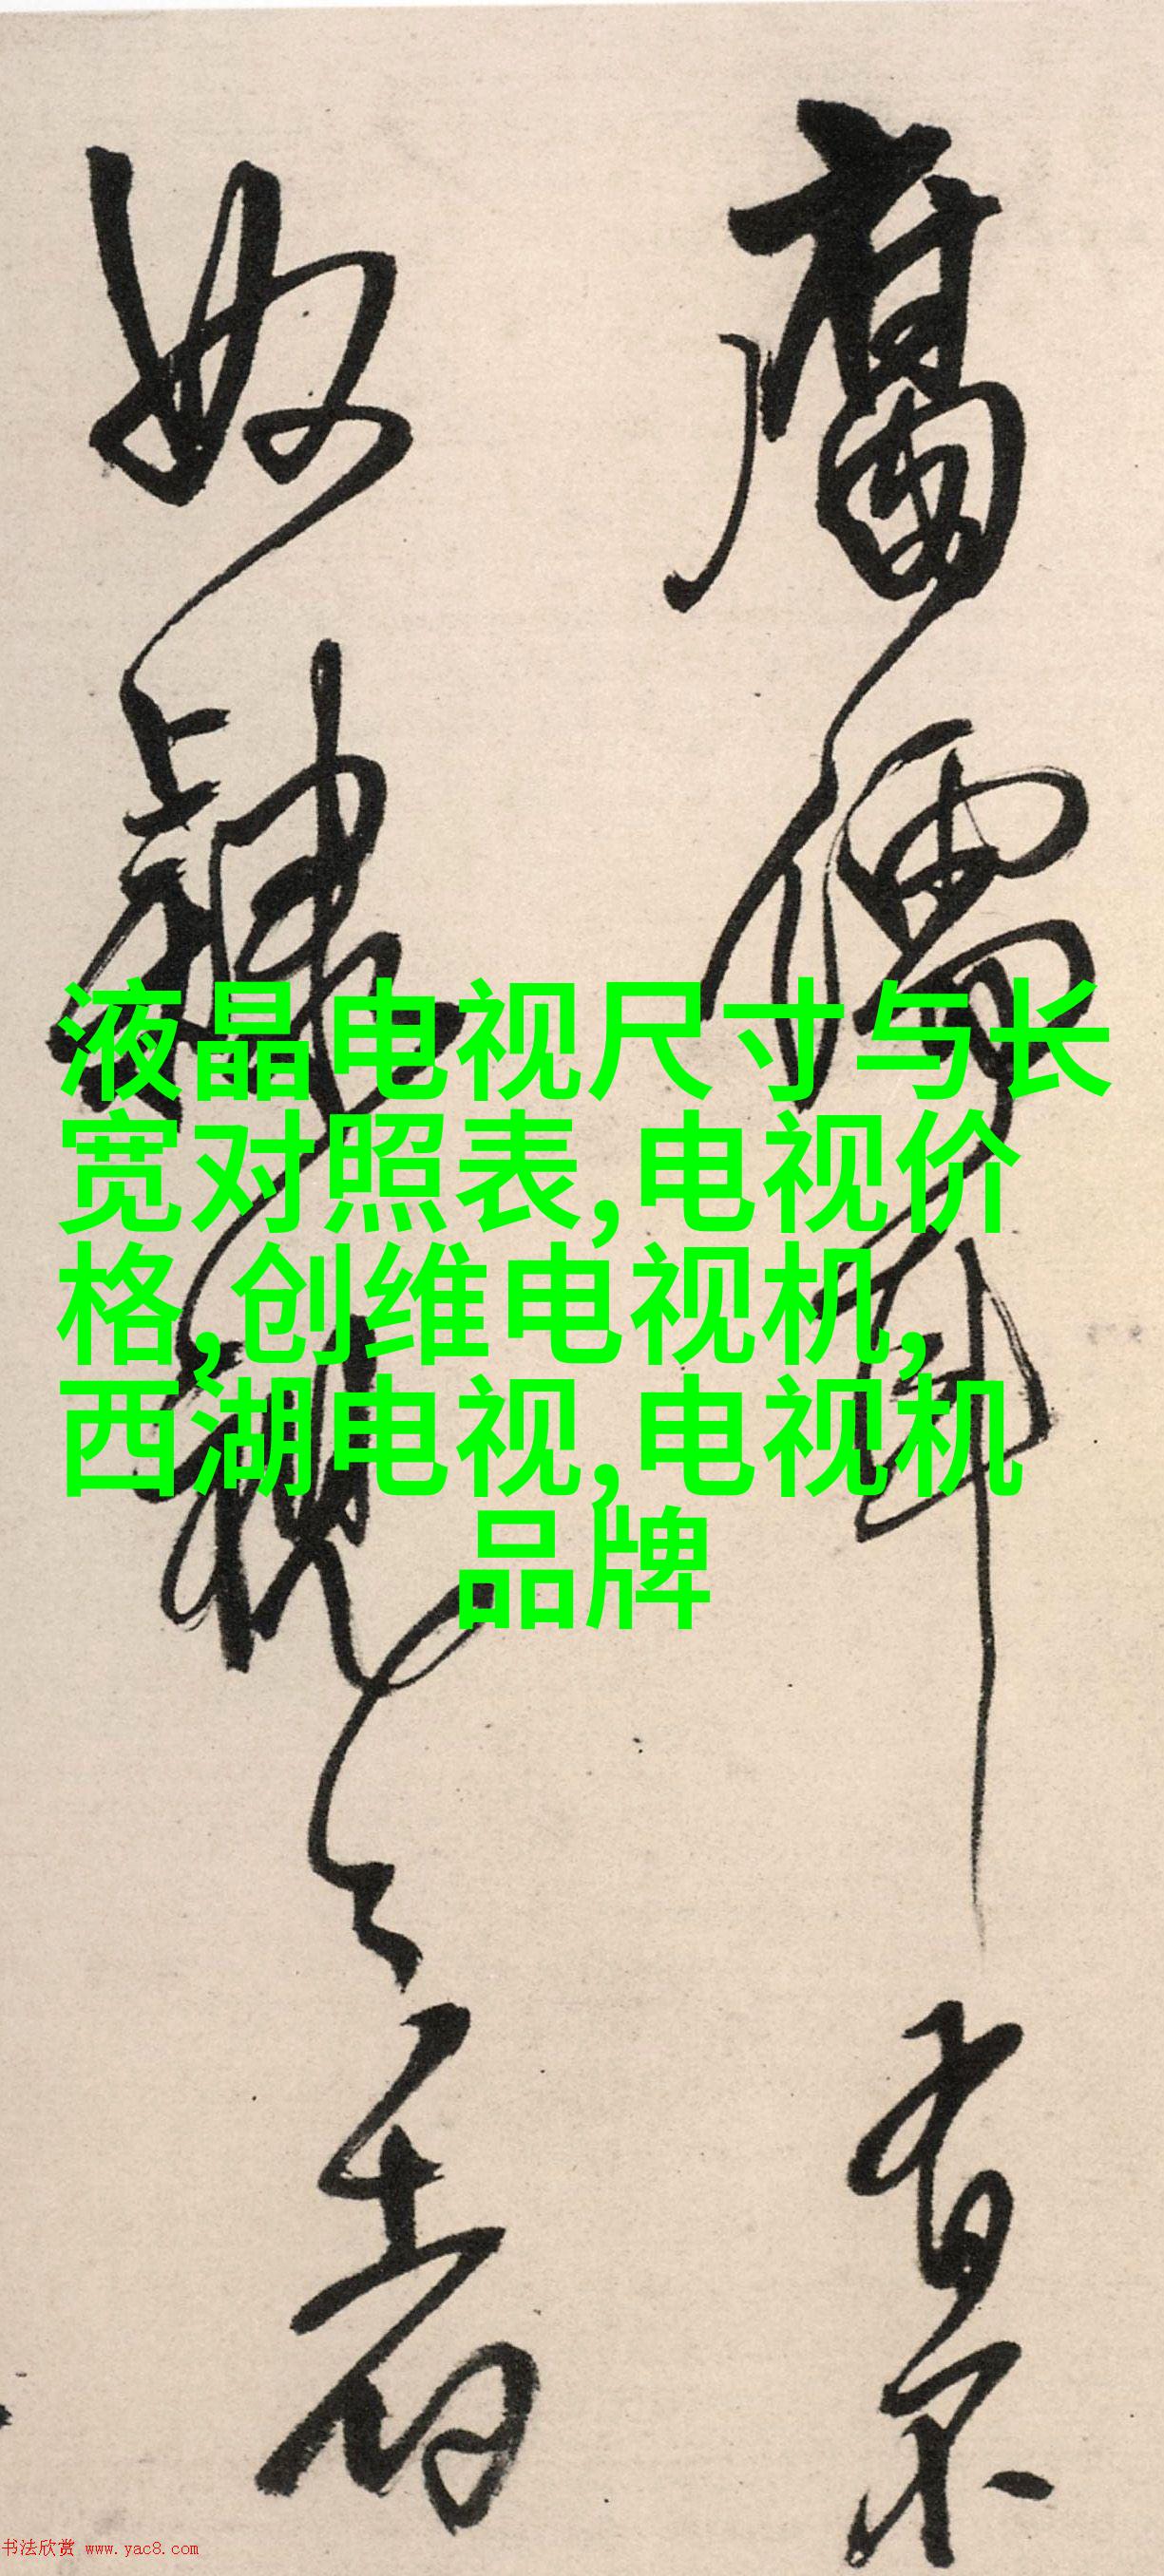 腐儒耳有不
好隸魏之者
液晶电视尺寸与长
宽对照表,电视价
格,创维电视机,
西湖电视,电视机
品牌
书法欣赏 www.yac8.com